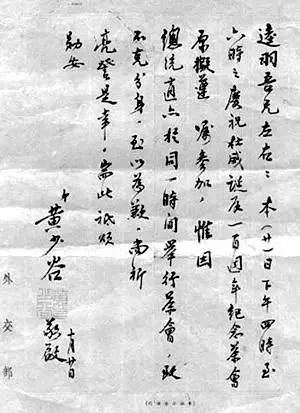 達羽吾兄左右：本（廿）日下午四時至
六時之慶祝杜威誕辰一百週年紀念茶會
原擬遵 囑參加，惟因
總統適亦於同一時間舉行茶會，致
不克分身，至以為歉。尚祈
亮詧是幸。耑此祗頌
勛安
弟
黃少谷
敬啟
十月廿日
外交部